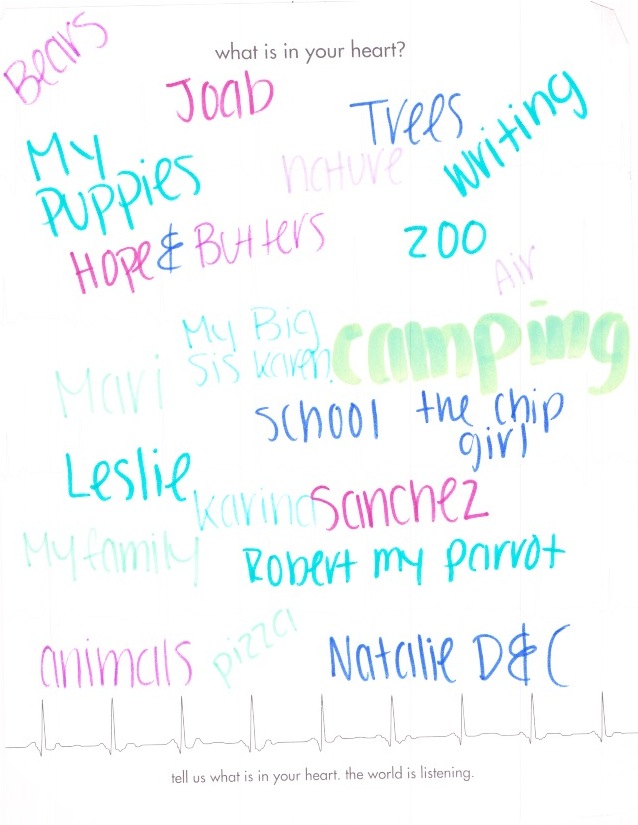 Bears
what is in your heart?
Joab
Trees
writing
My
Puppies
nature
Hope & Butters
zoo
Air
My Big
Sis Karen
camping
Mari
School
the chip
girl
Leslie
Karina
Sanchez
My family
Robert my parrot
animals
pizza
Natalie D&C
tell us what is in your heart. the world is listening.